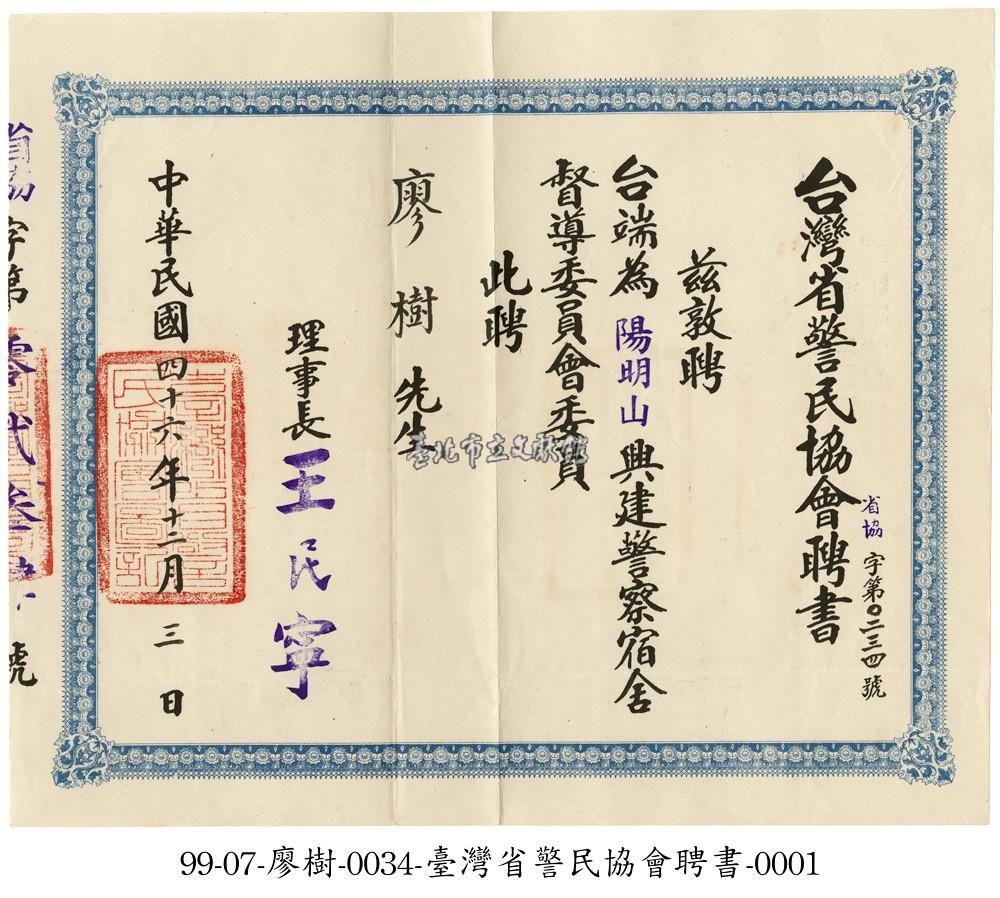 台灣省警民協會聘書
省協字第〇二三四號
茲敦聘
台端為陽明山興建警察宿舍
督導委員會委員
此聘
廖樹先生
理事長王民寧
中華民國四十六年十二月三日
省協字第零弍叁肆號
臺北市立文獻館
99-07-廖樹-0034-臺灣省警民協會聘書-0001